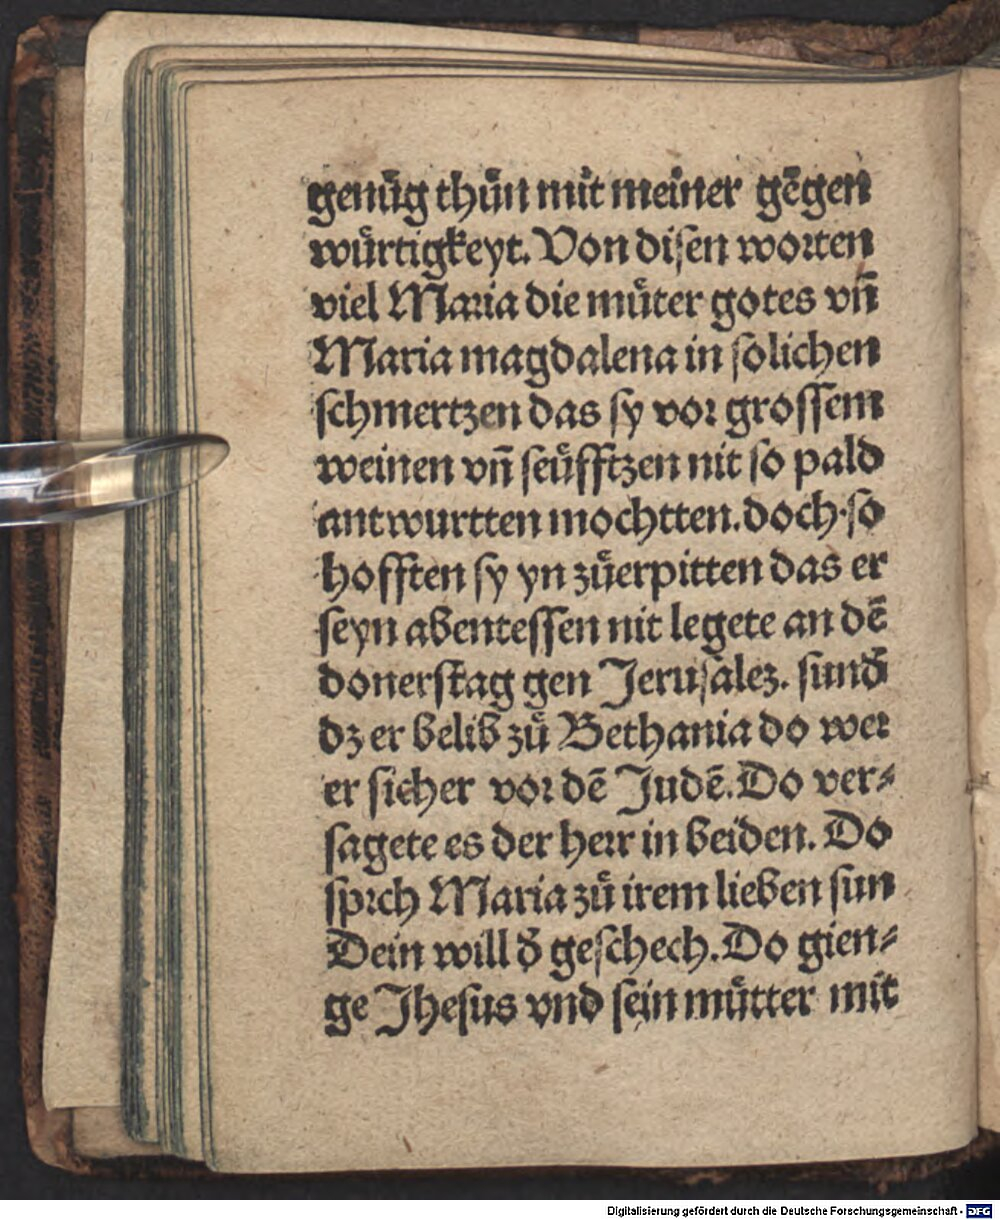 genuͤg thuͤn mit meiner gēgen
wuͤrtigkeyt. Von diſen worten
viel Maria die muͤter gotes vn̄
Maria magdalena in ſolichen
ſchmertzen das ſy vor groſſem
weinen vn̄ ſeuͤfftzen nit ſo pald
antwurtten mochtten. doch ſo
hofften ſy yn zuͤerpitten das er
ſeyn abenteſſen nit legete an dē
donerſtag gen Jeruſalez. ſund̓
dz er belib zuͤ Bethania do wer
er ſicher vor dē Judē. Do ver⸗
ſagete es der herr in beiden. Do
ſprch Maria zuͤ irem lieben ſun
Dein will d̓ geſchech. Do gien⸗
ge Jheſus vnd ſein muͤtter mit
Digitalisierung gefördert durch die Deutsche Forschungsgemeinschaft - DFG